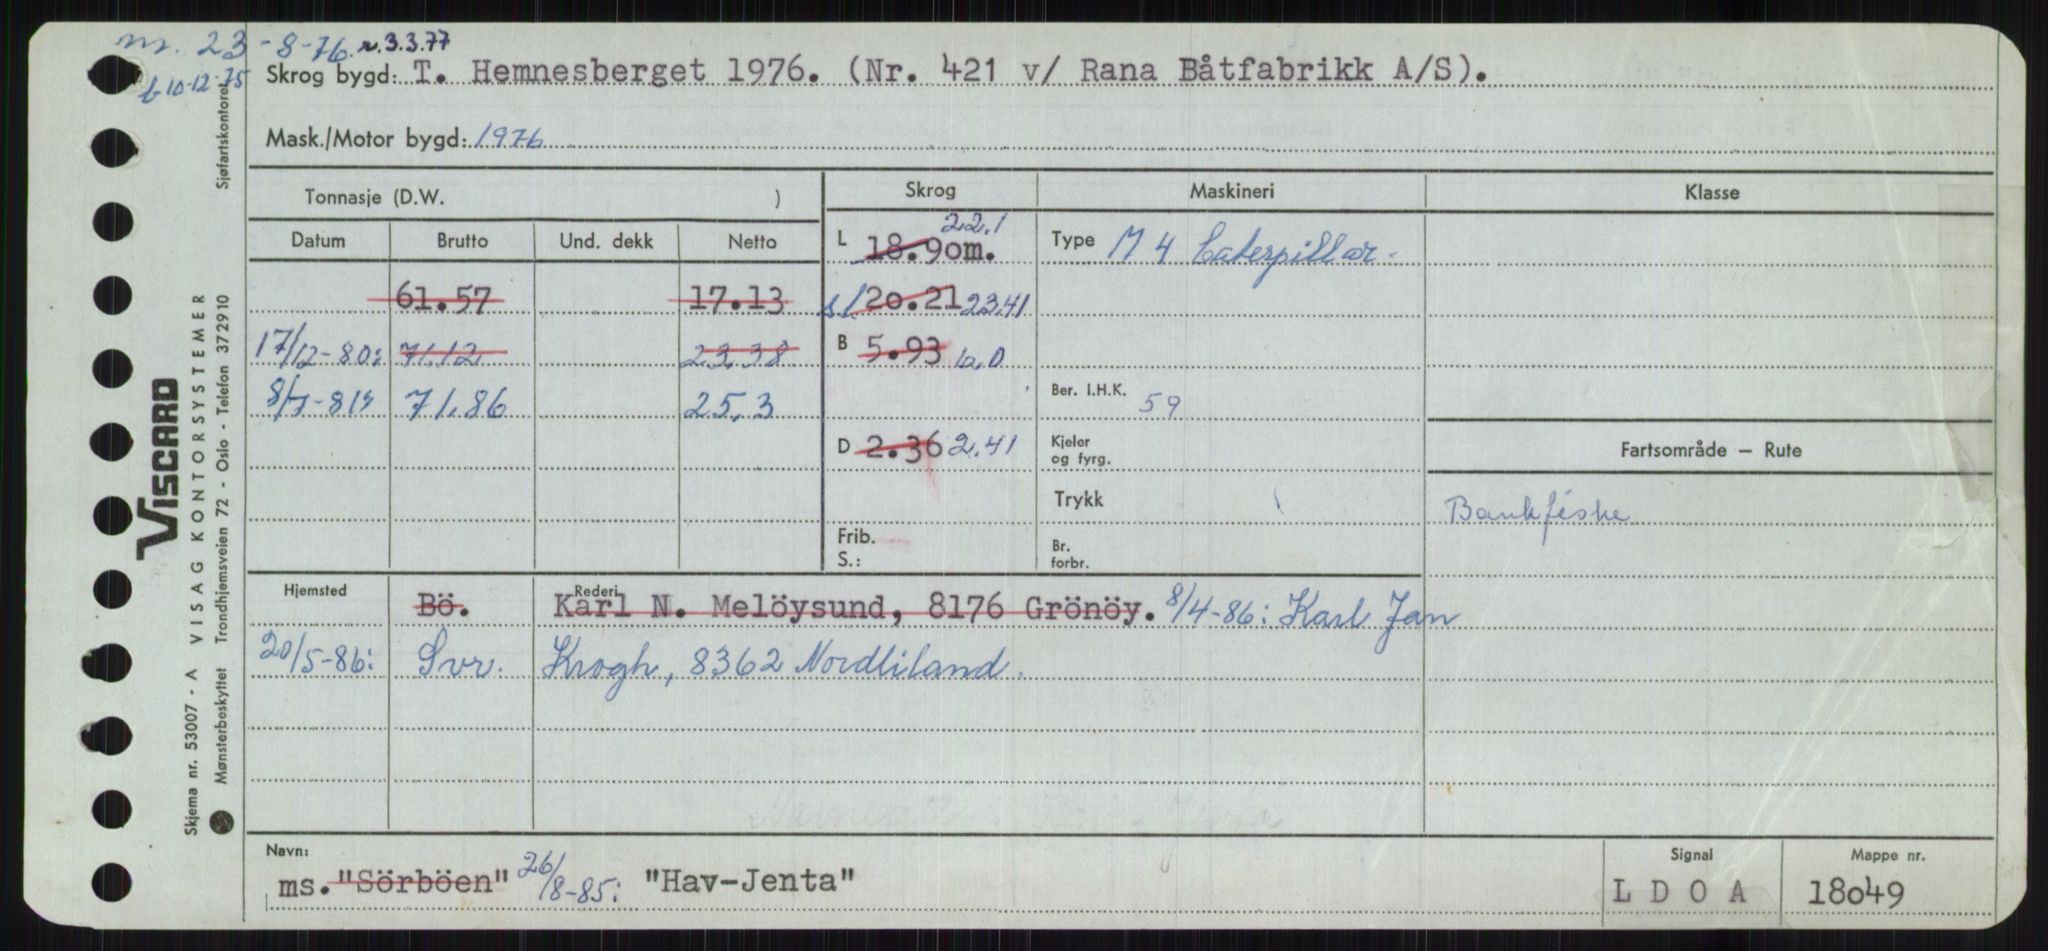 m. 23-8-76. r.3.3.77
b 10-12-75
Skrog bygd: T. Hemnesberget 1976. (Nr. 421 v/ Rana Båtfabrikk A/S).
Mask./Motor bygd: 1976
Tonnasje (D.W. ) Skrog Maskineri Klasse
Datum Brutto Und. dekk Netto
L 18.9om. 22,1 Type M 4 Caterpillar.
61.57 17.13 sl 20.21 23,41
17/12-80: 71,12 23,38 B 5.93 6,0
8/7-81: 71,86 25,3 Ber. I.H.K. 59
D 2.36 2,41 Kjeler og fyrg. Fartsområde — Rute
Trykk Bankfiske
Frib. S.: Br. forbr.
Hjemsted Rederi
Bö. Karl N. Melöysund, 8176 Grönöy. 8/4-86: Karl Jan
20/5-86: Svr. Krogh, 8362 Nordliland.
Navn: Signal Mappe nr.
ms. "Sörböen" 26/8-85: "Hav-Jenta" LDOA 18o49
VISCARD
Skjema nr. 53007 - A VISAG KONTORSYSTEMER
Mønsterbeskyttet Trondhjemsveien 72 - Oslo - Telefon 372910 Sjøfartskontoret